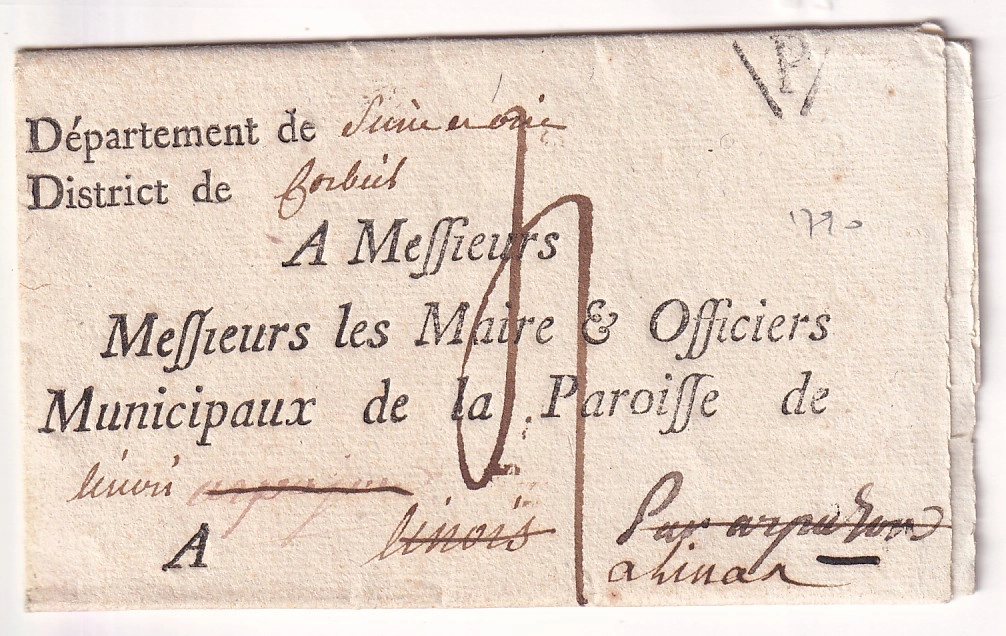 P
Département de Seine et oise
District de Corbeil
A Meſſieurs
1790
Meſſieurs les Maire & Officiers
Municipaux de la Paroiſſe de
linois
A linois Par arpajon
a linas